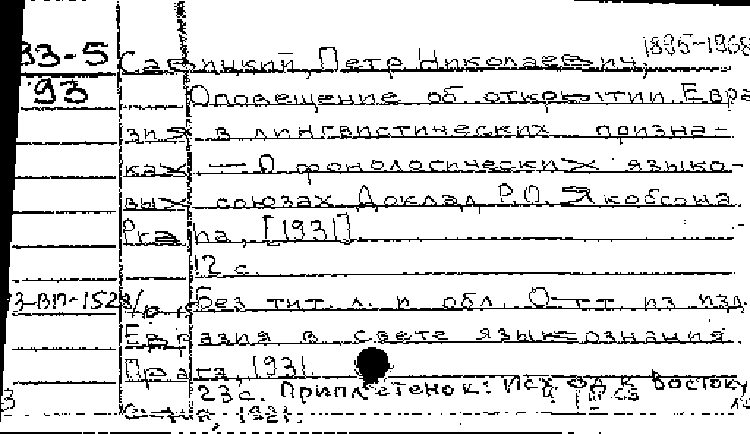 1895-1968
93-5 Савицкий, Петр Николаевич,
93 Оповещение об открытии Евра
зия в лингвистических призна-
ках. — О фонологических языко-
вых союзах Доклад Р.О. Якобсона
Praha, [1931]
12 с.
Без тит. л. и обл. Отт. из изд.
Евразия в свете языкознания
Прага, 1931.
23 с. Приплетенок: Исход к Востоку
1921.